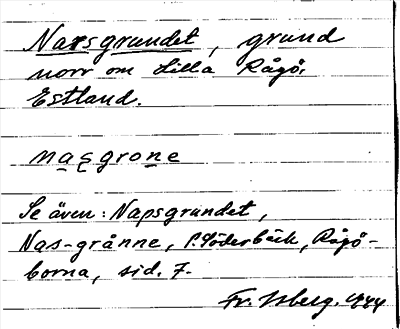 Narsgrundet, grund
norr om Lilla Rågö,
Estland.
nasgrone
Se även: Napsgrundet,
Nas-grånne, P. Söderbäck, Rågö-
borna, sid. 7.
Fr. Isberg. 1944